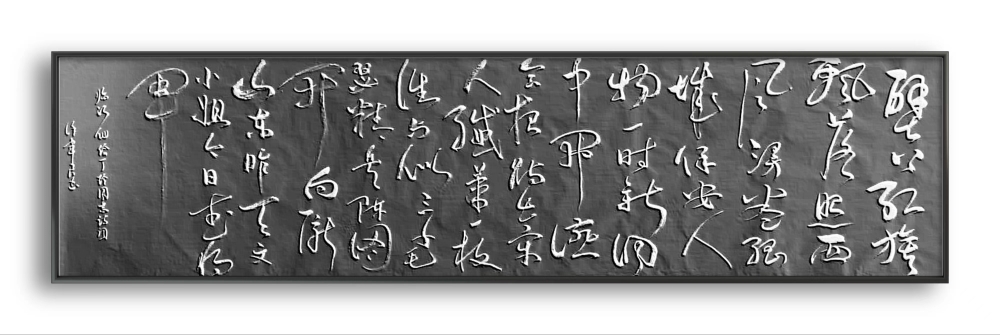 壁上红旗
飘落照西
风漫卷孤
城保安人
物一时新洞
中开宴
会招待出牢
人纤笔一枝
谁与似三千毛
瑟精兵阵图
开向陇
山东昨天文
小姐今日武将
军
临江仙给丁玲同志